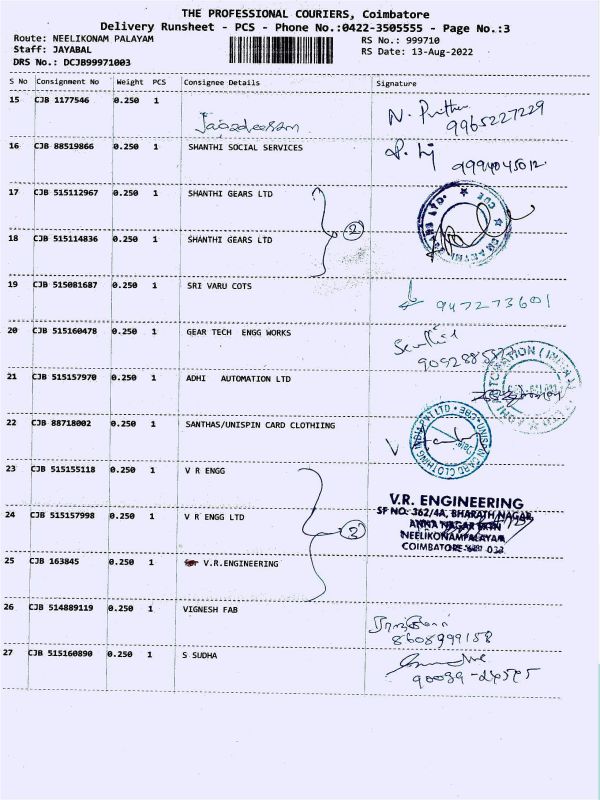 THE PROFESSIONAL COURIERS, Coimbatore
Delivery Runsheet - PCS - Phone No.:0422-3505555 - Page No.:3
Route: NEELIKONAM PALAYAM RS No.: 999710
Staff: JAYABAL RS Date: 13-Aug-2022
DRS No.: DCJB99971003
S No Consignment No Weight PCS Consignee Details Signature
15 CJB 1177546 0.250 1 Jagadeesan
9965227229
16 CJB 88519866 0.250 1 SHANTHI SOCIAL SERVICES
9994045012
17 CJB 515112967 0.250 1 SHANTHI GEARS LTD
2
18 CJB 515114836 0.250 1 SHANTHI GEARS LTD
19 CJB 515081687 0.250 1 SRI VARU COTS 947273601
20 CJB 515160478 0.250 1 GEAR TECH ENGG WORKS
21 CJB 515157970 0.250 1 ADHI AUTOMATION LTD
22 CJB 88718002 0.250 1 SANTHAS/UNISPIN CARD CLOTHIING
UNISPIN CARD CLOTHING INDIA PVT LTD CBE
23 CJB 515155118 0.250 1 V R ENGG
V.R. ENGINEERING
SF NO. 362/4A, BHARATH NAGAR,
24 CJB 515157998 0.250 1 V R ENGG LTD
ANNA NAGAR
NEELIKONAMPALAYAM
COIMBATORE 033
25 CJB 163845 0.250 1 V.R.ENGINEERING
26 CJB 514889119 0.250 1 VIGNESH FAB
8608999158
27 CJB 515160890 0.250 1 S SUDHA